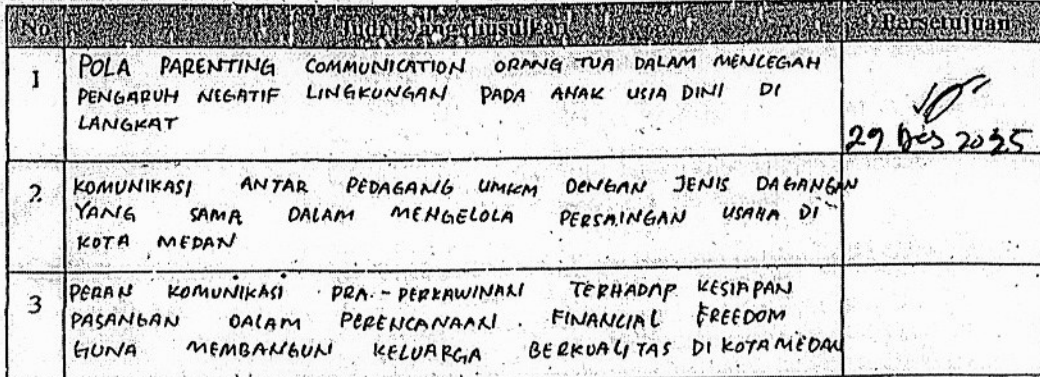 No Judul yang diusulkan Persetujuan
1 POLA PARENTING COMMUNICATION ORANG TUA DALAM MENCEGAH
PENGARUH NEGATIF LINGKUNGAN PADA ANAK USIA DINI DI
LANGKAT
29 Des 2025
2. KOMUNIKASI ANTAR PEDAGANG UMKM DENGAN JENIS DAGANGAN
YANG SAMA DALAM MENGELOLA PERSAINGAN USAHA DI
KOTA MEDAN
3 PERAN KOMUNIKASI PRA - PERKAWINAN TERHADAP KESIAPAN
PASANGAN DALAM PERENCANAAN FINANCIAL FREEDOM
GUNA MEMBANGUN KELUARGA BERKUALITAS DI KOTA MEDAN